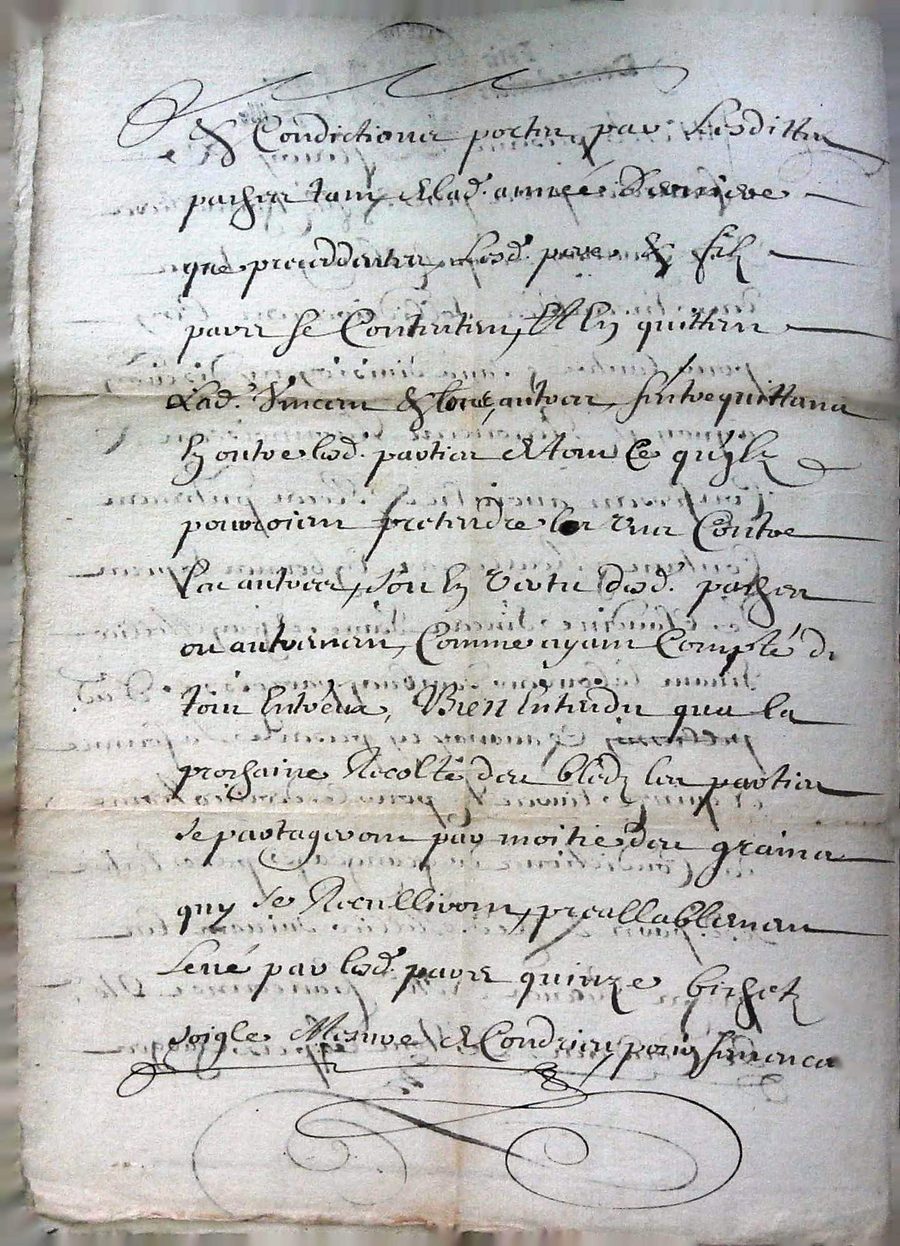 & Condictions portes par lesdittes
paches tant de lad. année derniere
que precedentes, lesd. pere & filz
payre se contentent, Et en quittent
lad. Vincent & les autres, s'entrequittans
en outre lesd. parties de tout ce quylz
pouroient pretendre les uns contre
les autres, soit en vertu desd. paches
ou autrement, comme ayant compté de
tout entreux, Bien entendu que la
prochaine Recolte des bledz les parties
se partageront par moitié des grains
quy se Recullliront, preallablement
levé par lesd. payre quinze bichetz
soigle Mesure de Condrieu pour semences